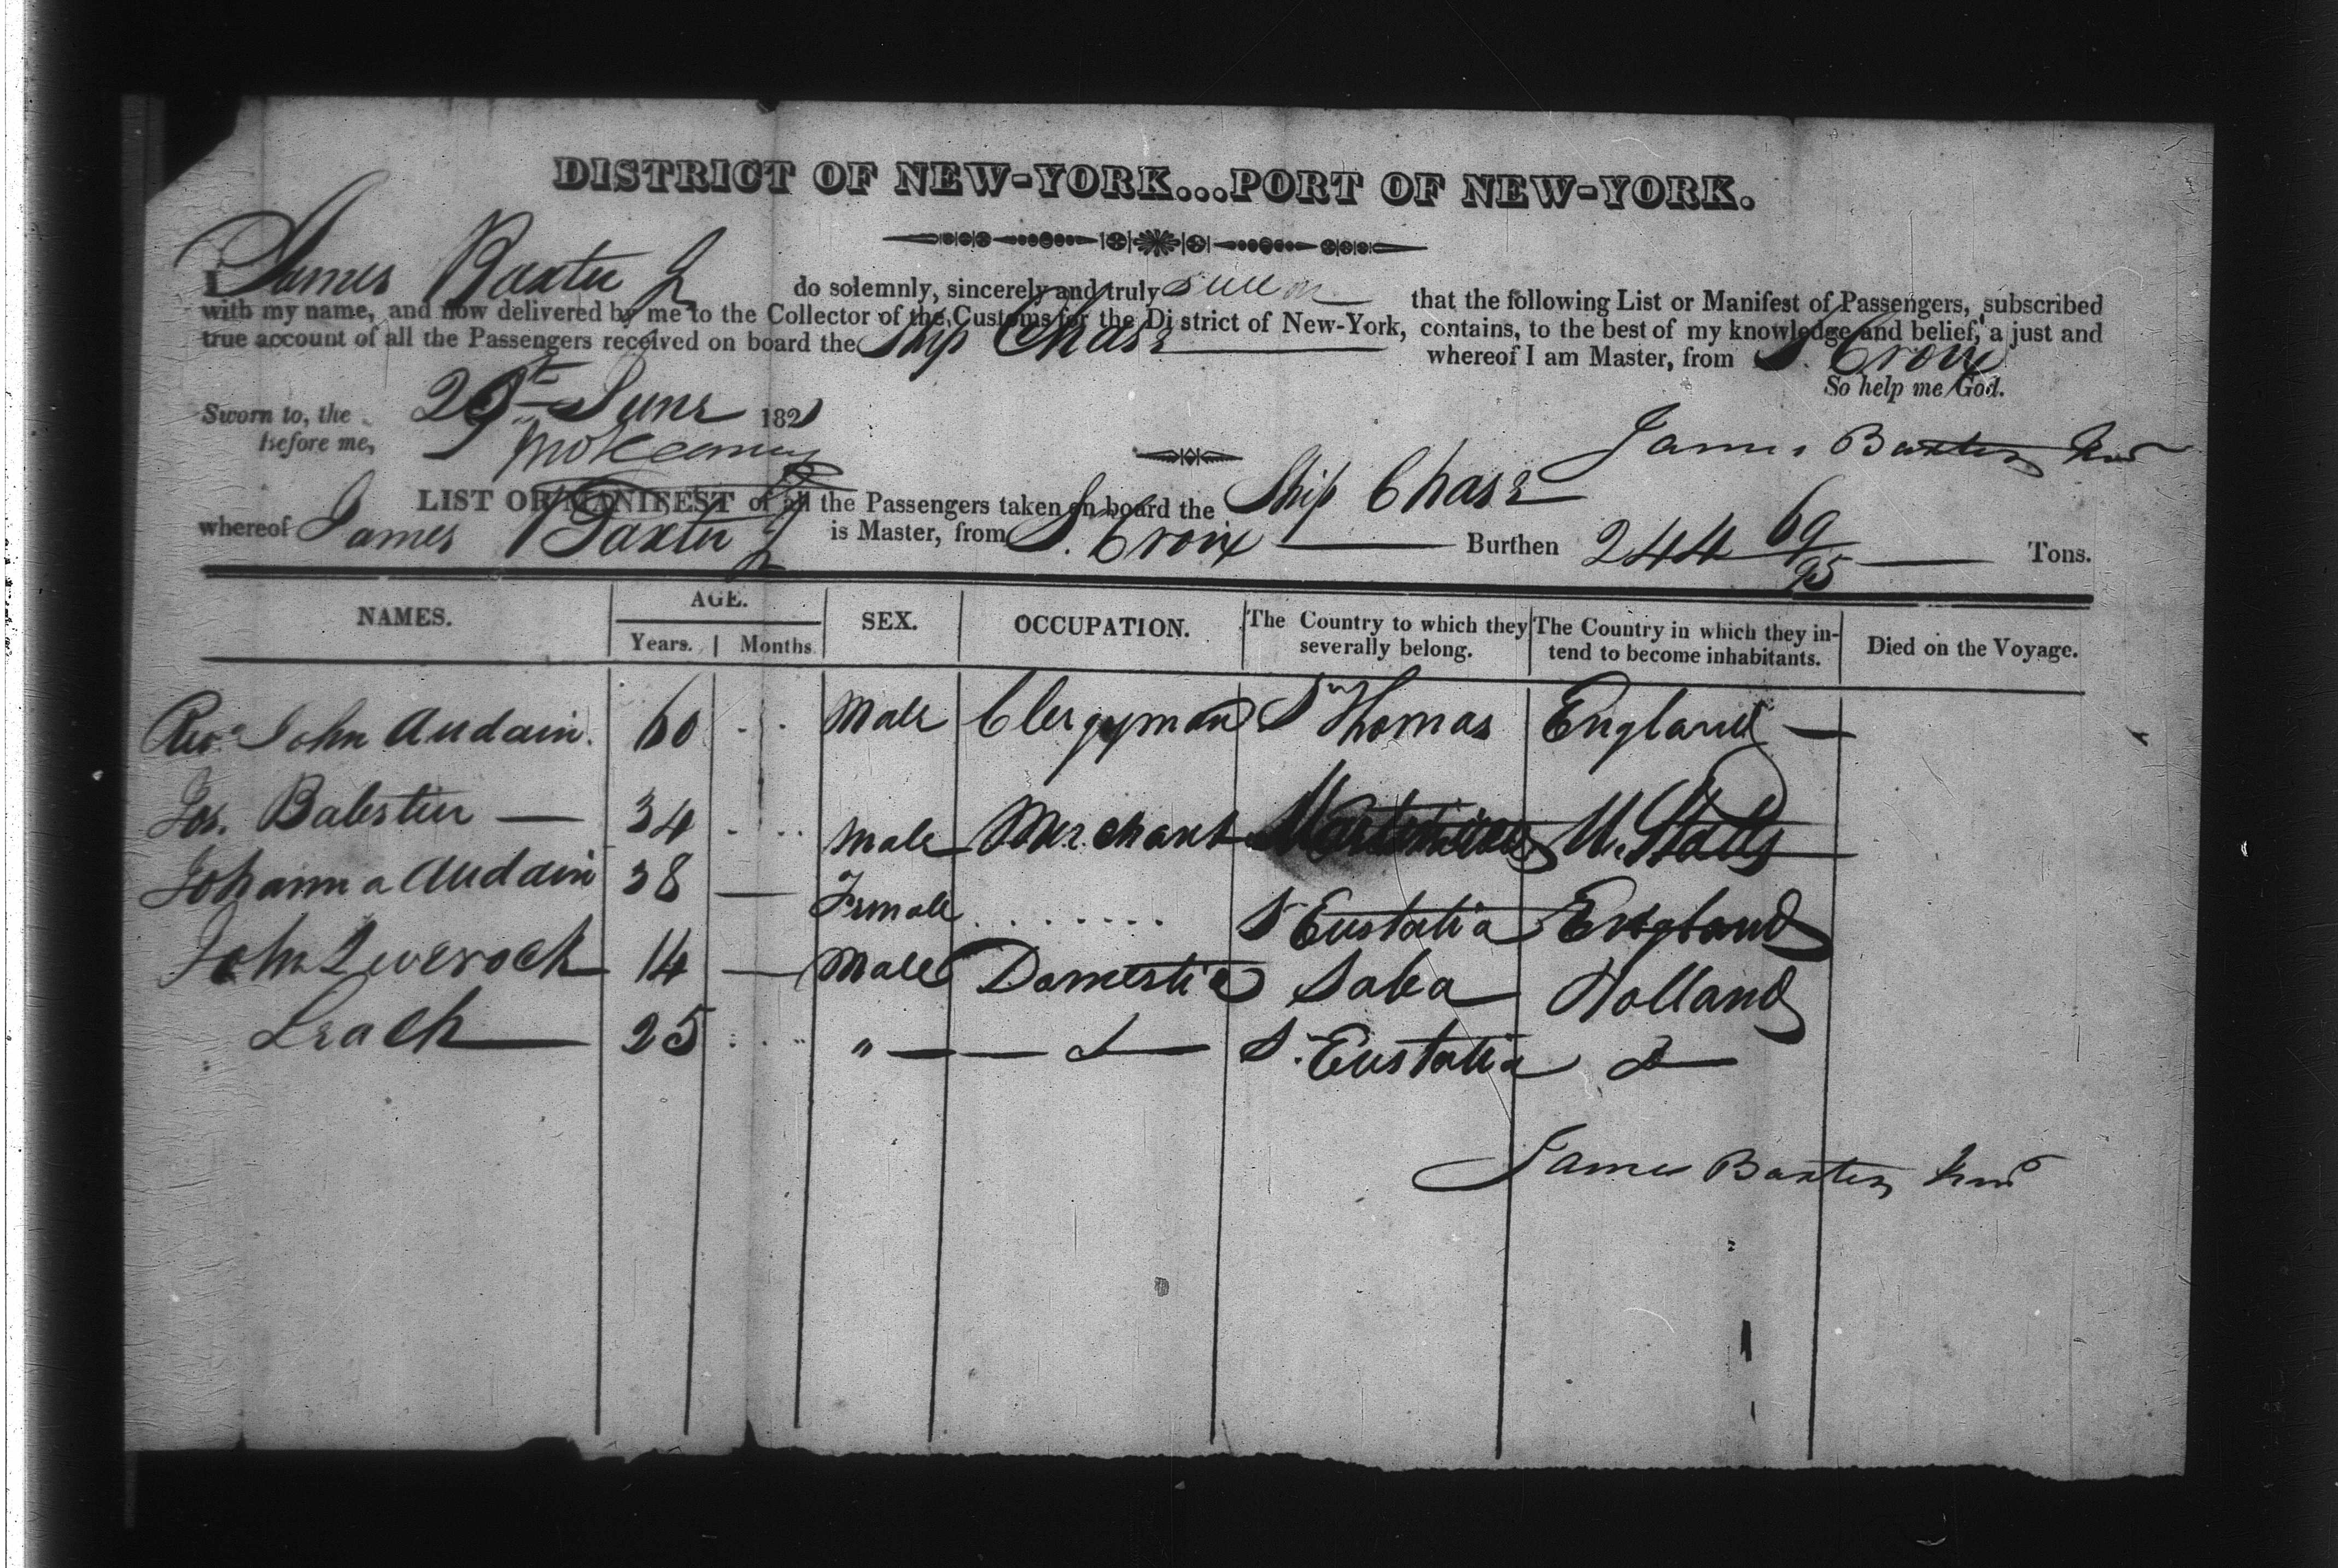 DISTRICT OF NEW-YORK...PORT OF NEW-YORK.
I James Baxter Jr do solemnly, sincerely and truly swear that the following List or Manifest of Passengers, subscribed
with my name, and now delivered by me to the Collector of the Customs for the District of New-York, contains, to the best of my knowledge and belief, a just and
true account of all the Passengers received on board the Ship Chase whereof I am Master, from St. Croix
So help me God.
Sworn to, the 29th June 1821
Before me,
James Baxter Junr
LIST OR MANIFEST of all the Passengers taken on board the Ship Chase
whereof James Baxter Jr is Master, from St. Croix Burthen 244 69/95 Tons.
NAMES. AGE. SEX. OCCUPATION. The Country to which they severally belong. The Country in which they intend to become inhabitants. Died on the Voyage.
Years. Months.
Revd. John Audain. 60 Male Clergyman St Thomas England
Jos. Balestier 34 Male Merchant U. States
Johanna Audain 38 Female St Eustatia England
John Leverock 14 Male Domestic Saba Holland
25 " do St. Eustatia do
James Baxter Junr